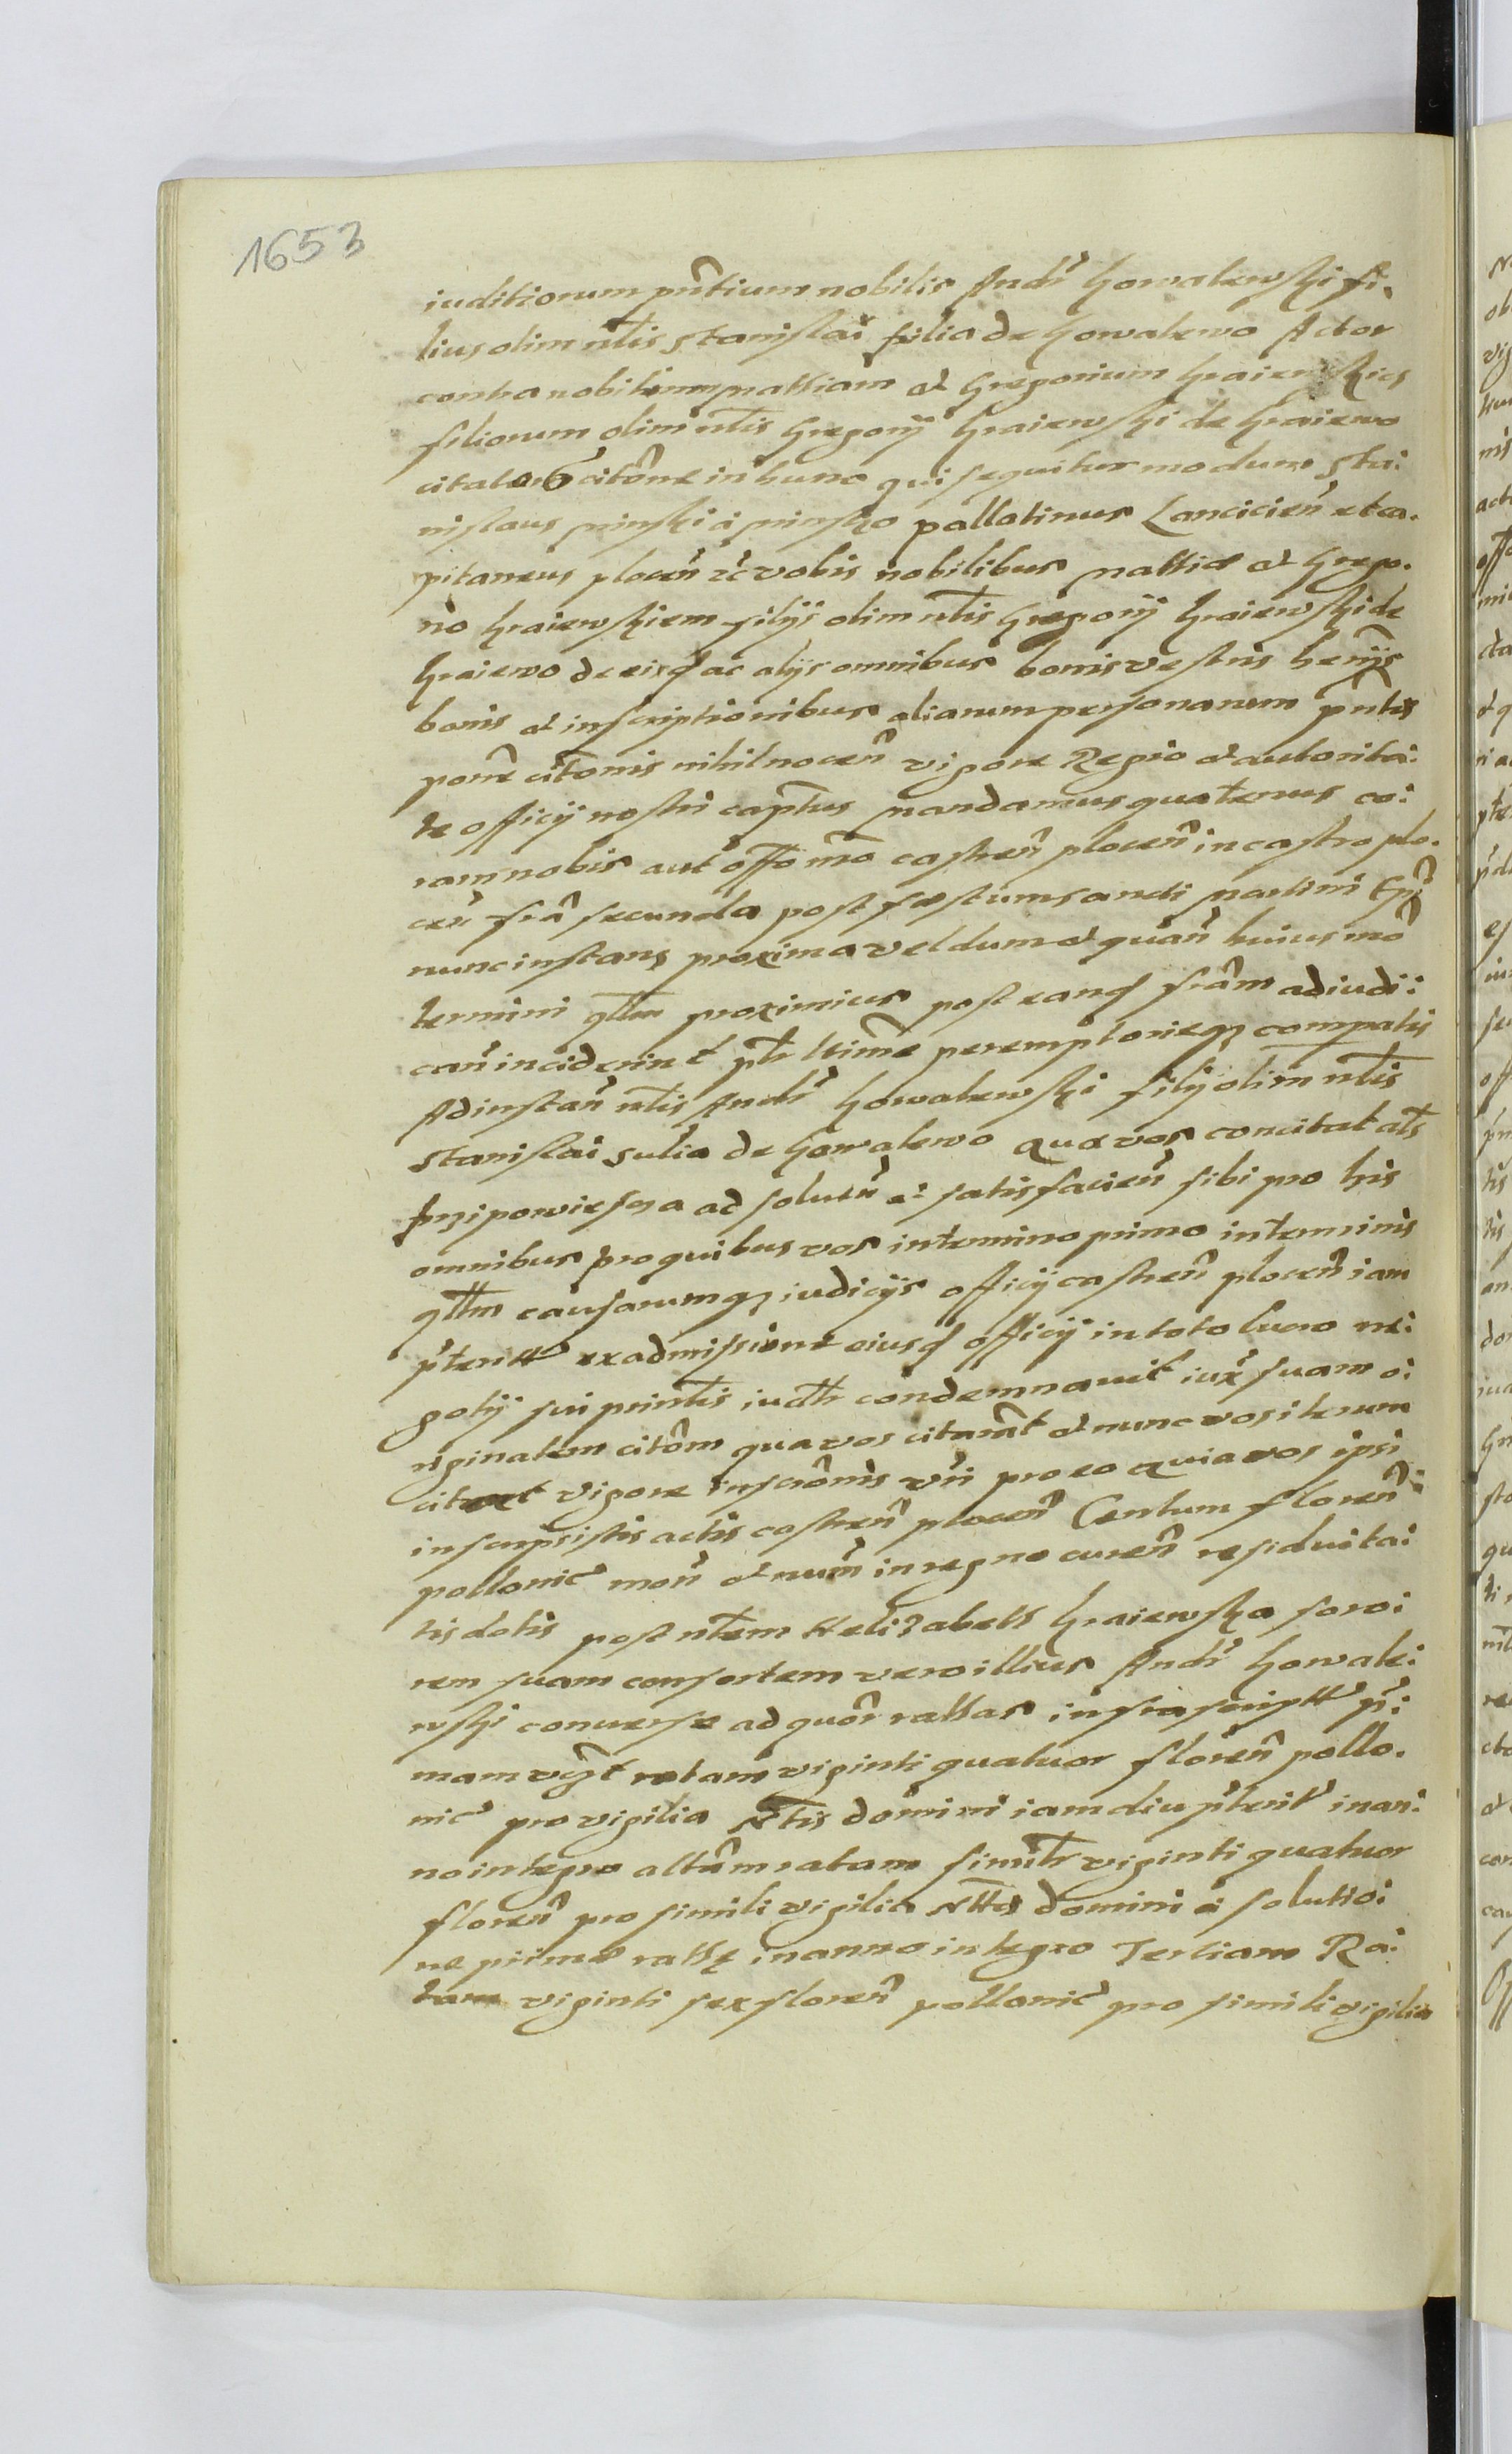 1653
iuditiorum pñtium nobilis Andr̃ Gowalewski fi.
lius olim nlis Stanislai sulia de Gowalewo Actor
contra nobilium mathiam et Gregorium Graiewskies
filiorum olim nlis Gregorÿ Graiewski de Graiewo
citator̃ citõne in hunc qui sequitur modum Sta:
nislaus minski a minsko pallatinus Lancicieñ et ca.
pitaneus ploceñ zc̃ vobis nobilibus mathiæ et Grego.
rio Graiewskiem filijs olim nlis Gregorij Graiewski de
Graiewo de eisd ac alijs omnibus bonis vestris
bonis et inscriptionibus aliarum personarum pñtis
poñe citõnis nihil noceñ vigore Regio et autorita:
te officij nostri captus mandamus quatenus co:
ram nobis aut offo ñro castreñ ploceñ in castro plo.
ceñ fr̃a secunda post festum sancti martini Ep̃i
nunc instans proxima vel dum et quañ huius mõ
termini qllm proximius post eand fr̃am adiudi:
cañ inciderint pltr ltime peremptorieqz compatis
Ad instañ nlis Andr̃ Gowalewski filij olim nlis
Stanislai sulia de Gowalewo qua vos concitat als
przipowiesza ad soluẽn et satisfacieñ sibi pro his
omnibus pro quibus vos in termino primo in terminis
qllm causarumqz iudicijs officij castreñ ploceñ iam
p̃terit ex admissione eiusd officij in toto lucro ne:
gotij sui prĩntis iudtr condemnauit iux̃ suam o:
riginalem citõm qua vos citarãt et nunc vos iterum
citat vigore inscrõnis vĩi pro eo quia vos ipsi
inscripsistis actis castreñ ploceñ Centum floreñ
pollonic̃ moñ et num̃ in regno cureñ residuita:
tis dotis post nlem Helizabeth Graiewska soro:
rem suam consortem vero illius Andr̃ Gowale:
wski conuerse ad quõr rathas infrascript p̃:
mam ratam viginti quatuor floreñ pollo.
nic̃ pro vigilia Ntis domini iamdiu p̃terit in an:
no integro altãm ratam similtr viginti quatuor
floreñ pro simili vigilia Ntis domini a solutio:
ne prime rathę in anno integro Tertiam Ra:
tam viginti sex floreñ pollonic̃ pro simili vigilia